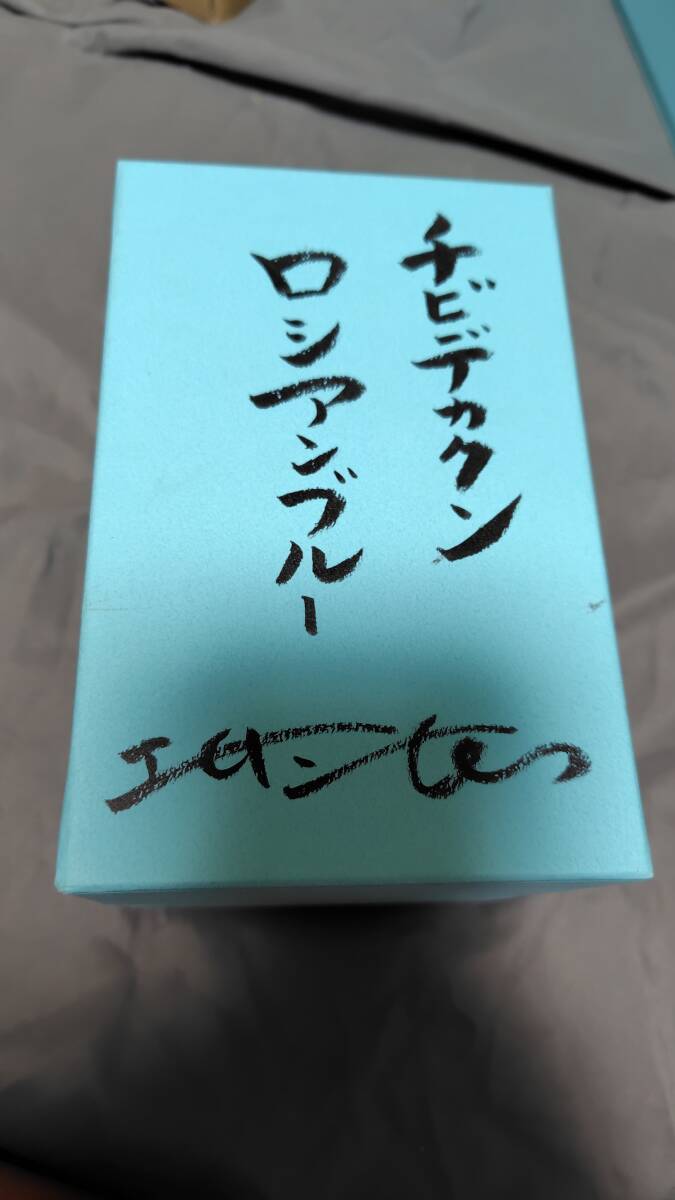 チビデカクン
ロシアンブルー